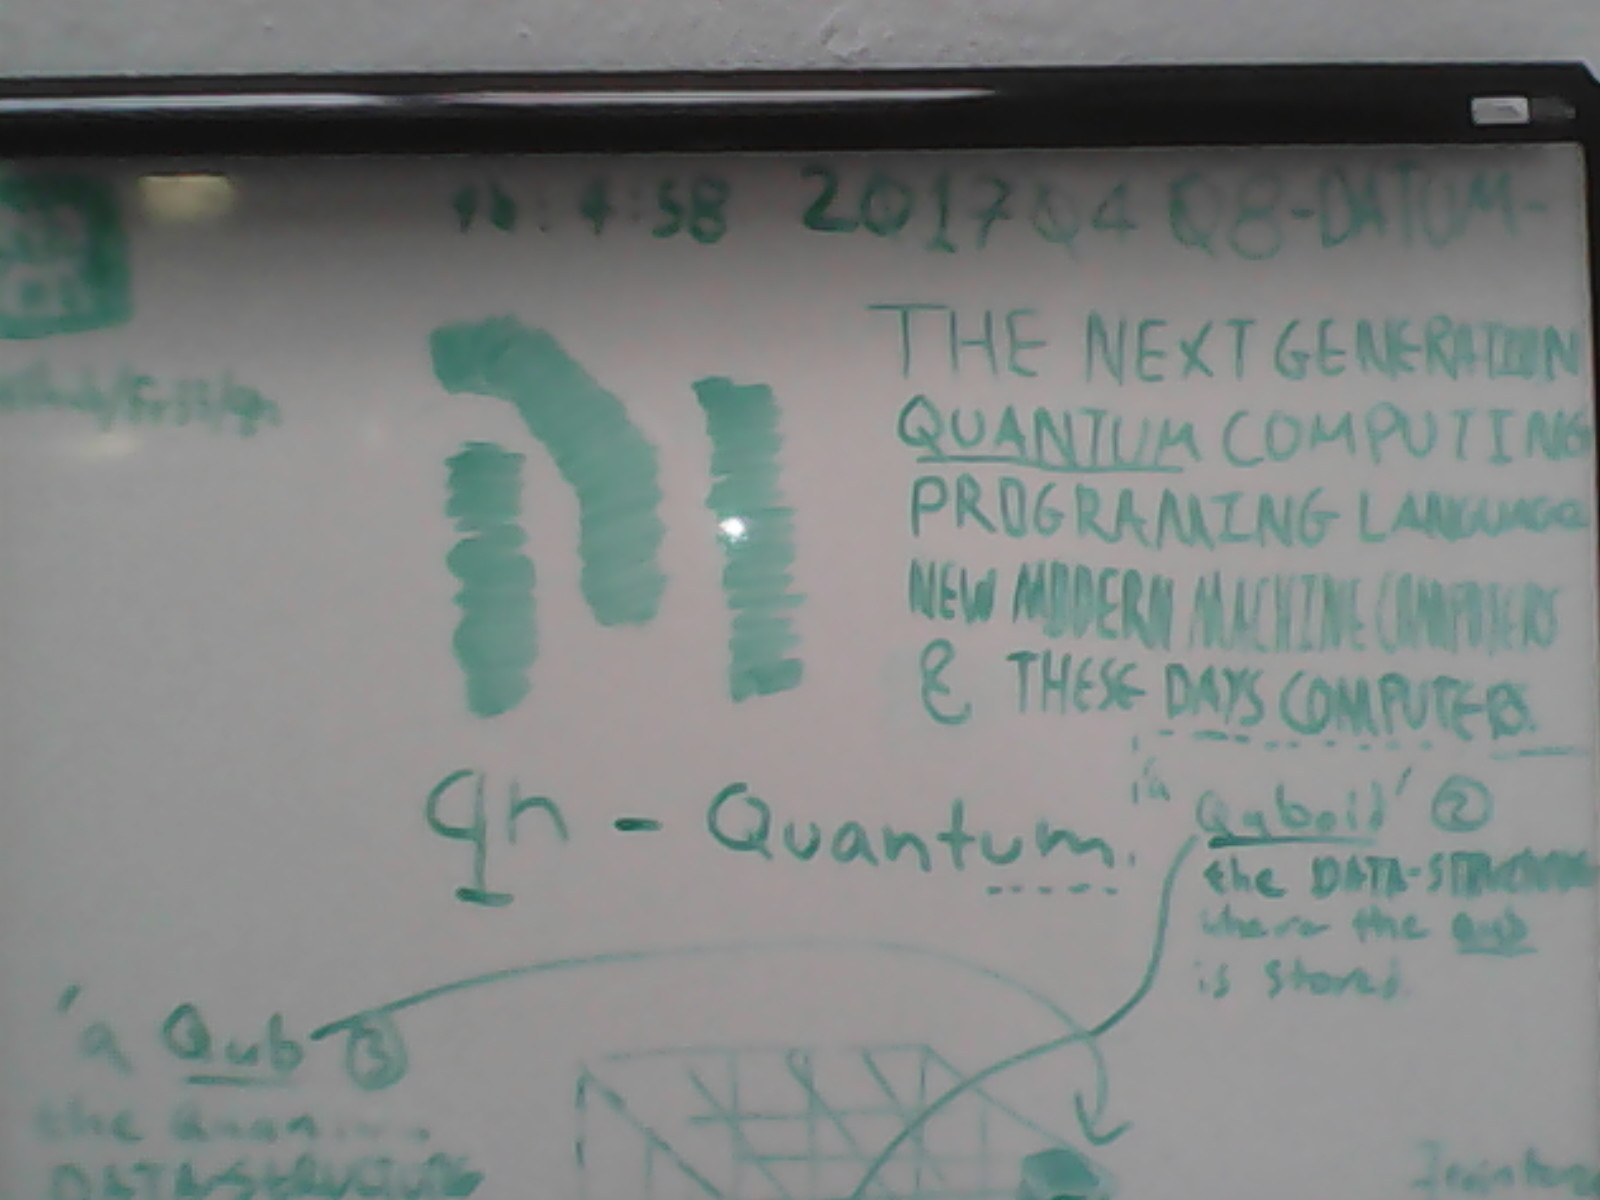 :58 2017 Q4 Q8-DATUM-
THE NEXT GENERATION
QUANTUM COMPUTING
PROGRAMING LANGUAGE
NEW MODERN MACHINE COMPUTERS
& THESE DAYS COMPUTERS.
qn - Quantum.
'a Quboid' 2
the DATA-STRUCTURE
where the qub
is stored
'a Qub 3
the
DATA-STRUCTURE